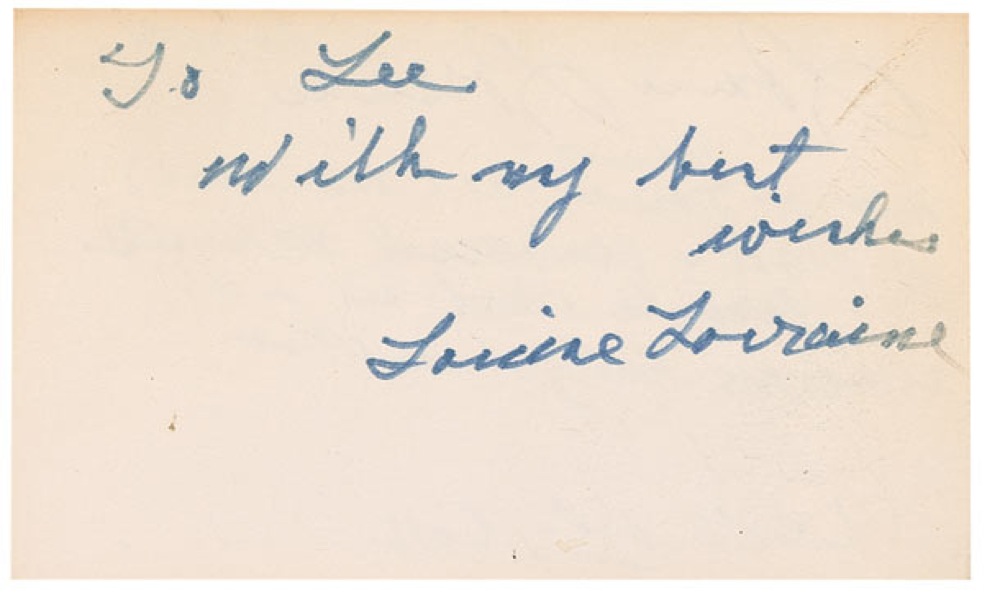 To Lee
With my best
wishes
Louise Lorraine